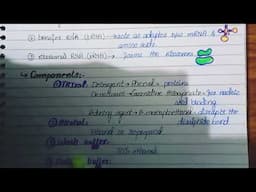 ② Transfer RNA (tRNA) → acts as adaptor b/w mRNA &
amino acids.
③ Ribosomal RNA (rRNA) → forms the ribosomes
→ Components:-
① TRIzol: Detergent → Phenol → proteins
Denaturant → Guanidine thiocyanate → for nucleic
acid binding
Reducing agent → β-mercaptoethanol → disrupts the
② Alcohol: disulphide bond
Ethanol or Isopropanol
③ Wash buffer:
70% ethanol
buffer: